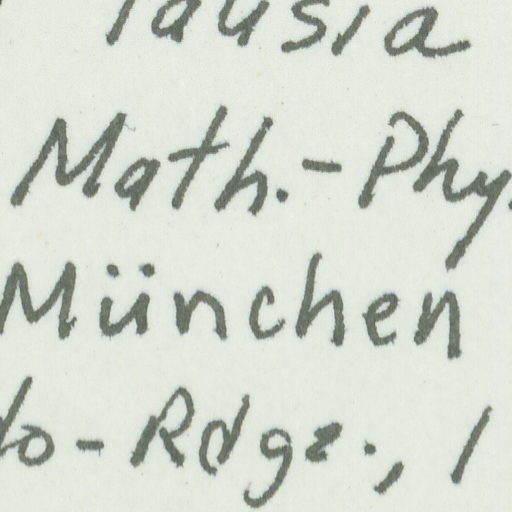 Tausia
Math.-Phy
München
do-Rdgz., 1